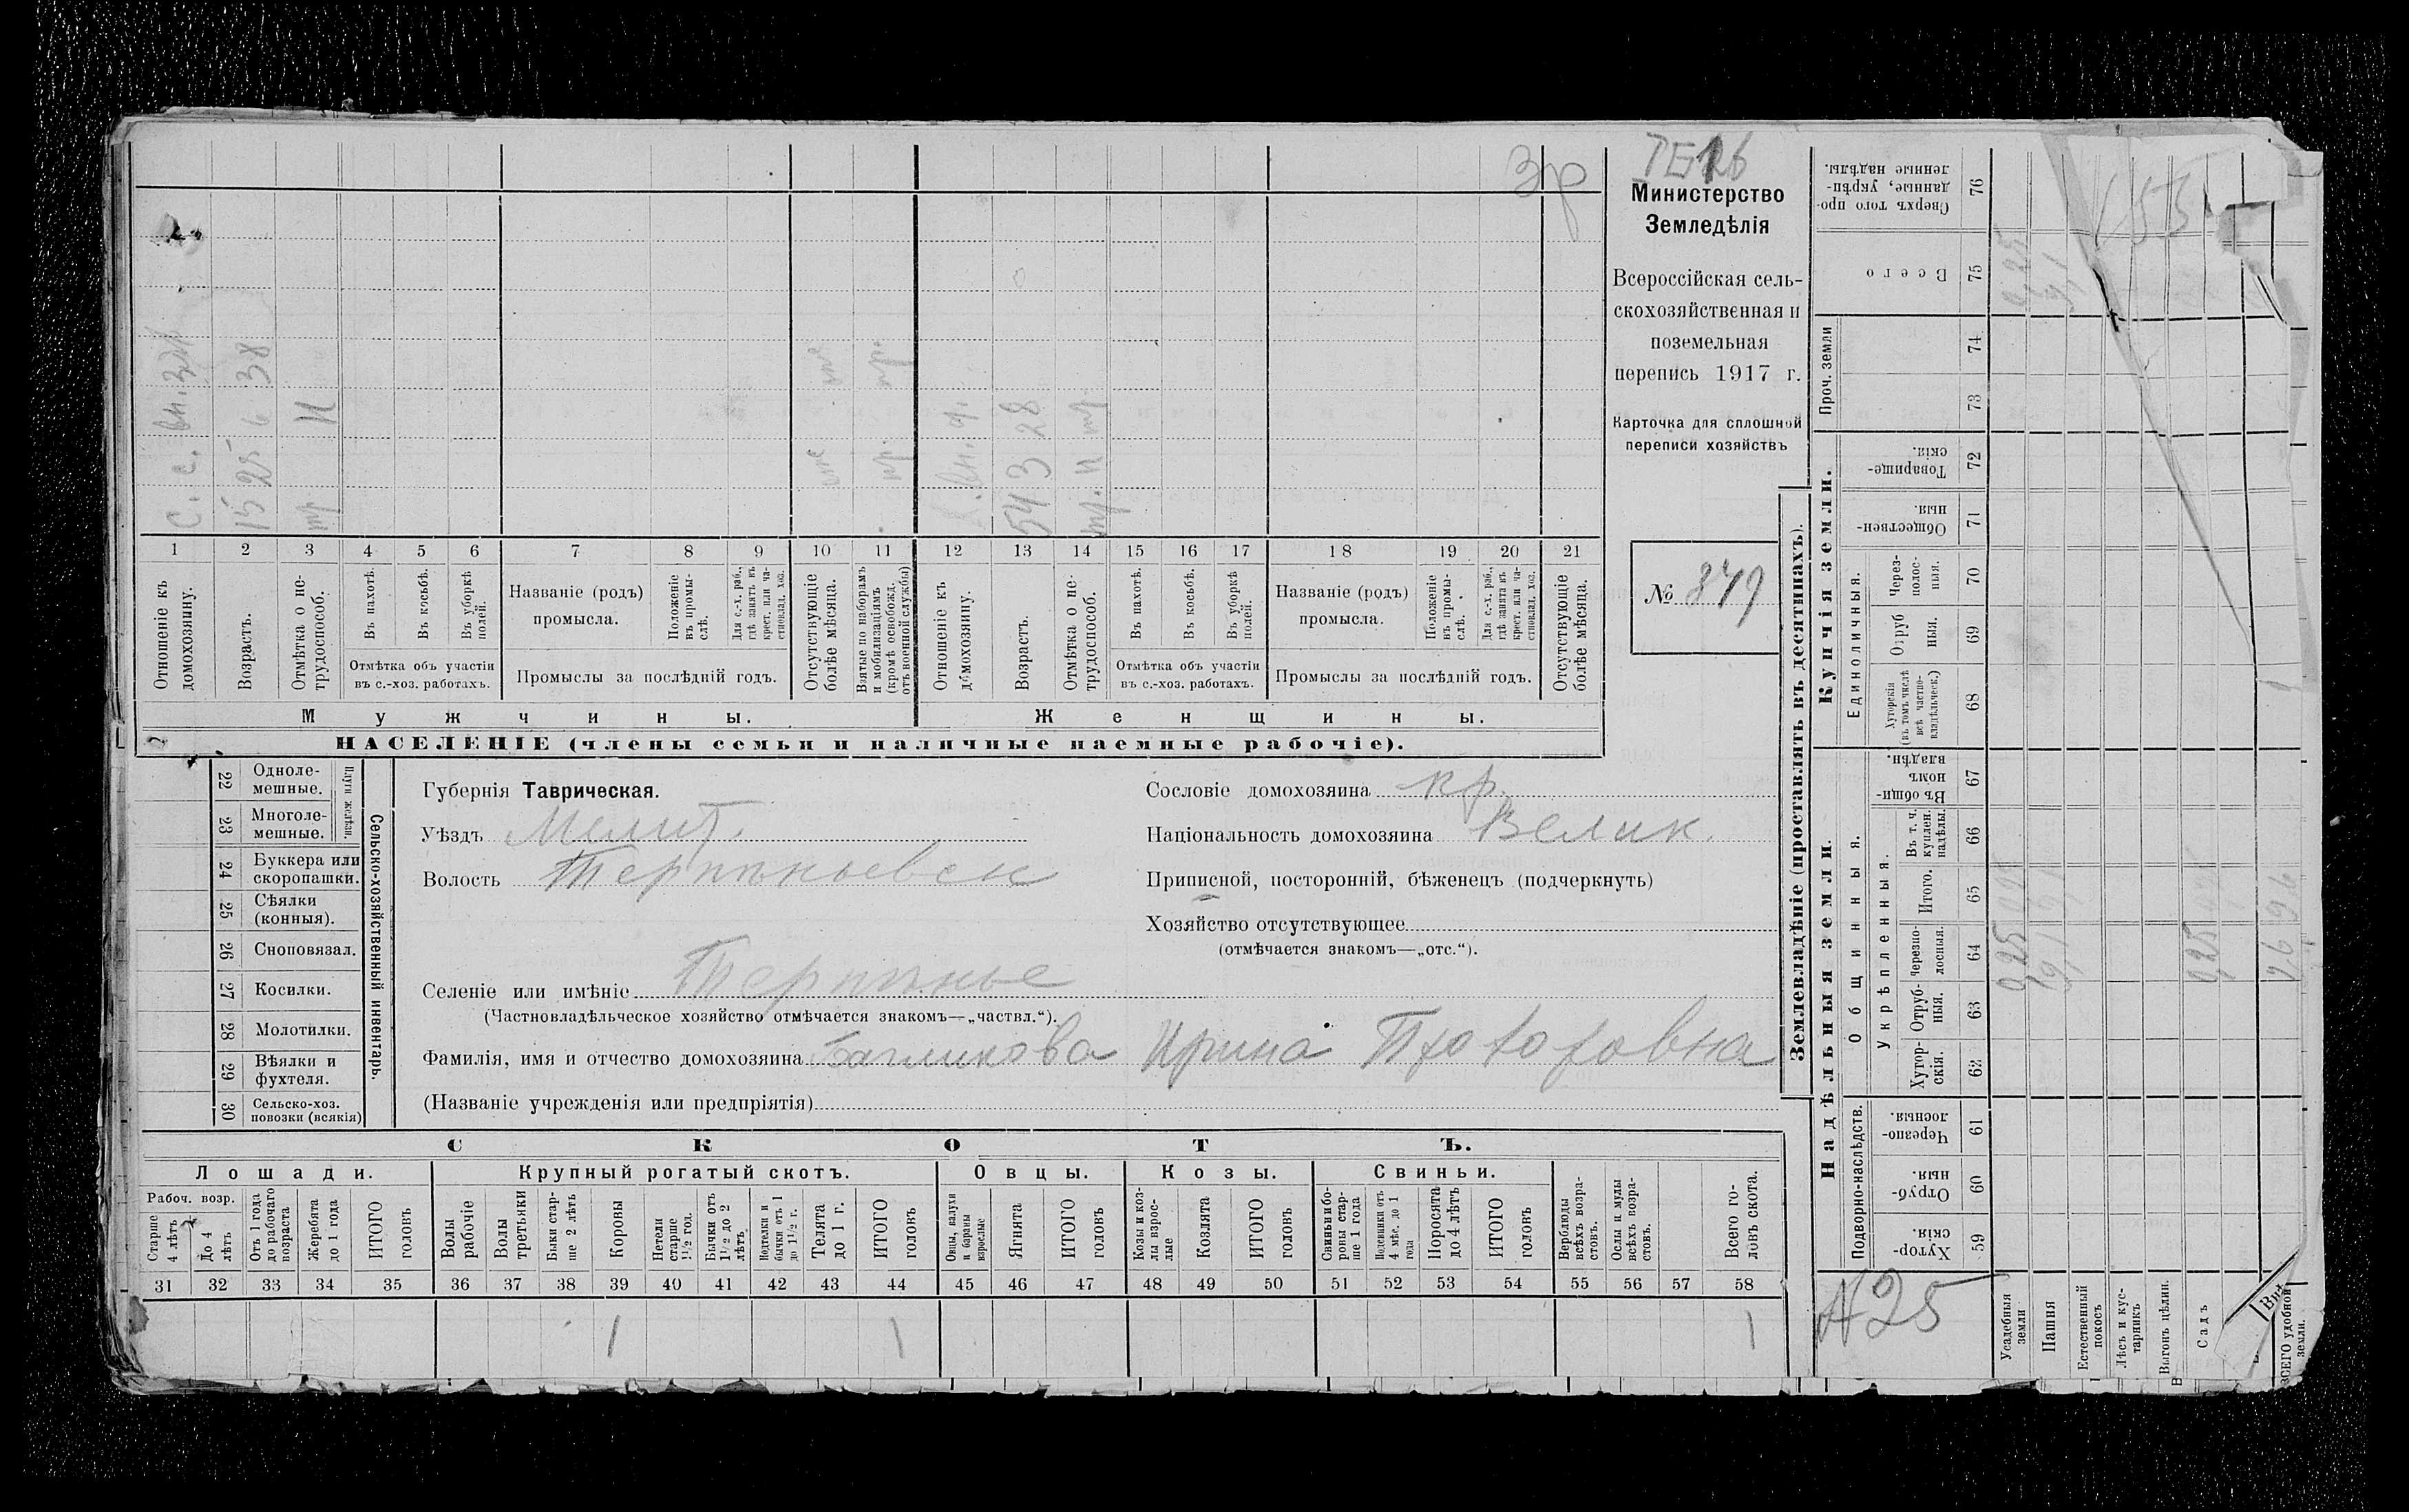 Зр
Министерство
Земледѣлія
Всероссійская сель-
скохозяйственная и
поземельная
перепись 1917 г.
Карточка для сплошной
переписи хозяйствъ
№ 379
С. с. вн. зят
15 25 6 38
тр и
оте оте
пр. пр.
вн. ф.
54 3 28
тр. и тр.
1 2 3 4 5 6 7 8 9 10 11 12 13 14 15 16 17 18 19 20 21
Отношеніе къ домохозяину.
Возрастъ.
Отмѣтка о не-трудоспособ.
Въ пахотѣ.
Въ косьбѣ.
Въ уборкѣ полей.
Отмѣтка объ участіи
въ с.-хоз. работахъ.
Названіе (родъ)
промысла.
Положеніе въ промы-слѣ.
Для с.-х. раб., гдѣ занятъ въ крест. или ча-стновлад. хоз.
Промыслы за послѣдній годъ.
Отсутствующіе болѣе мѣсяца.
Взятые по наборамъ и мобилизаціямъ (кромѣ освобожд. отъ военной службы)
Отношеніе къ домохозяину.
Возрастъ.
Отмѣтка о не-трудоспособ.
Въ пахотѣ.
Въ косьбѣ.
Въ уборкѣ полей.
Отмѣтка объ участіи
въ с.-хоз. работахъ.
Названіе (родъ)
промысла.
Положеніе въ промы-слѣ.
Для с.-х. раб., гдѣ занята въ крест. или ча-стновлад. хоз.
Промыслы за послѣдній годъ.
Отсутствующіе болѣе мѣсяца.
Мужчины.
Женщины.
НАСЕЛЕНІЕ (члены семьи и наличные наемные рабочіе).
22 Одноле-мешные.
23 Многоле-мешные.
Плуги желѣзн.
24 Буккера или скоропашки.
25 Сѣялки (конныя).
26 Сноповязал.
27 Косилки.
28 Молотилки.
29 Вѣялки и фухтеля.
30 Сельско-хоз. повозки (всякія)
Сельско-хозяйственный инвентарь.
Губернія Таврическая.
Уѣздъ Мелит.
Волость Терпѣньевск
Селеніе или имѣніе Терпѣнье
(Частновладѣльческое хозяйство отмѣчается знакомъ—„частвл.“).
Фамилія, имя и отчество домохозяина Багликова Ирина Прохоровна
(Названіе учрежденія или предпріятія)
Сословіе домохозяина кр.
Національность домохозяина Велик.
Приписной, посторонній, бѣженецъ (подчеркнуть)
Хозяйство отсутствующее
(отмѣчается знакомъ—„отс.“).
СКОТЪ.
Лошади.
Крупный рогатый скотъ.
Овцы.
Козы.
Свиньи.
Рабоч. возр.
Старше 4 лѣтъ
До 4 лѣтъ
Отъ 1 года до рабочаго возраста
Жеребята до 1 года
ИТОГО головъ
Волы рабочіе
Волы третьяки
Быки стар-ше 2 лѣтъ
Коровы
Нетели старше 1½ год.
Бычки отъ 1½ до 2 лѣтъ
Подтелки и бычки отъ 1 до 1½ г.
Телята до 1 г.
ИТОГО головъ
Овцы, валухи и бараны взрослые
Ягнята
ИТОГО головъ
Козы и коз-лы взрос-лые
Козлята
ИТОГО головъ
Свиньи и бо-ровы стар-ше 1 года
Подсвинки отъ 4 мѣс. до 1 года
Поросята до 4 лѣтъ
ИТОГО головъ
Верблюды всѣхъ возра-стовъ.
Ослы и мулы всѣхъ возра-стовъ.
Всего го-ловъ скота.
31 32 33 34 35 36 37 38 39 40 41 42 43 44 45 46 47 48 49 50 51 52 53 54 55 56 57 58
1 1 1
Землевладѣніе (проставлять въ десятинахъ).
Купчія земли.
Надѣльныя земли.
Сверхъ того про-данные, укрѣп-ленные надѣлы. 76
Всего 75
Проч. земли
74
73
Товарище-скія. 72
Обществен-ныя. 71
Единоличныя.
Через-полос-ныя. 70
Отруб ныя. 69
Хуторскія (въ томъ числѣ всѣ частно-владѣльческ.) 68
Въ общи-номъ владѣн. 67
Общинныя.
Укрѣпленныя.
Въ т. ч. куплен. надѣлы. 66
Итого. 65
Черезпо-лосныя. 64
Отруб-ныя. 63
Хутор-скія. 62
Подворно-наслѣдств.
Черезпо-лосныя. 61
Отруб-ныя. 60
Хутор-скія. 59
153
0,25
0,25
А25
Усадебныя земли
Пашня
Естественный покосъ
Лѣсъ и кус-тарникъ
Выгонъ цѣлин.
Садъ
ВСЕГО удобной земли.